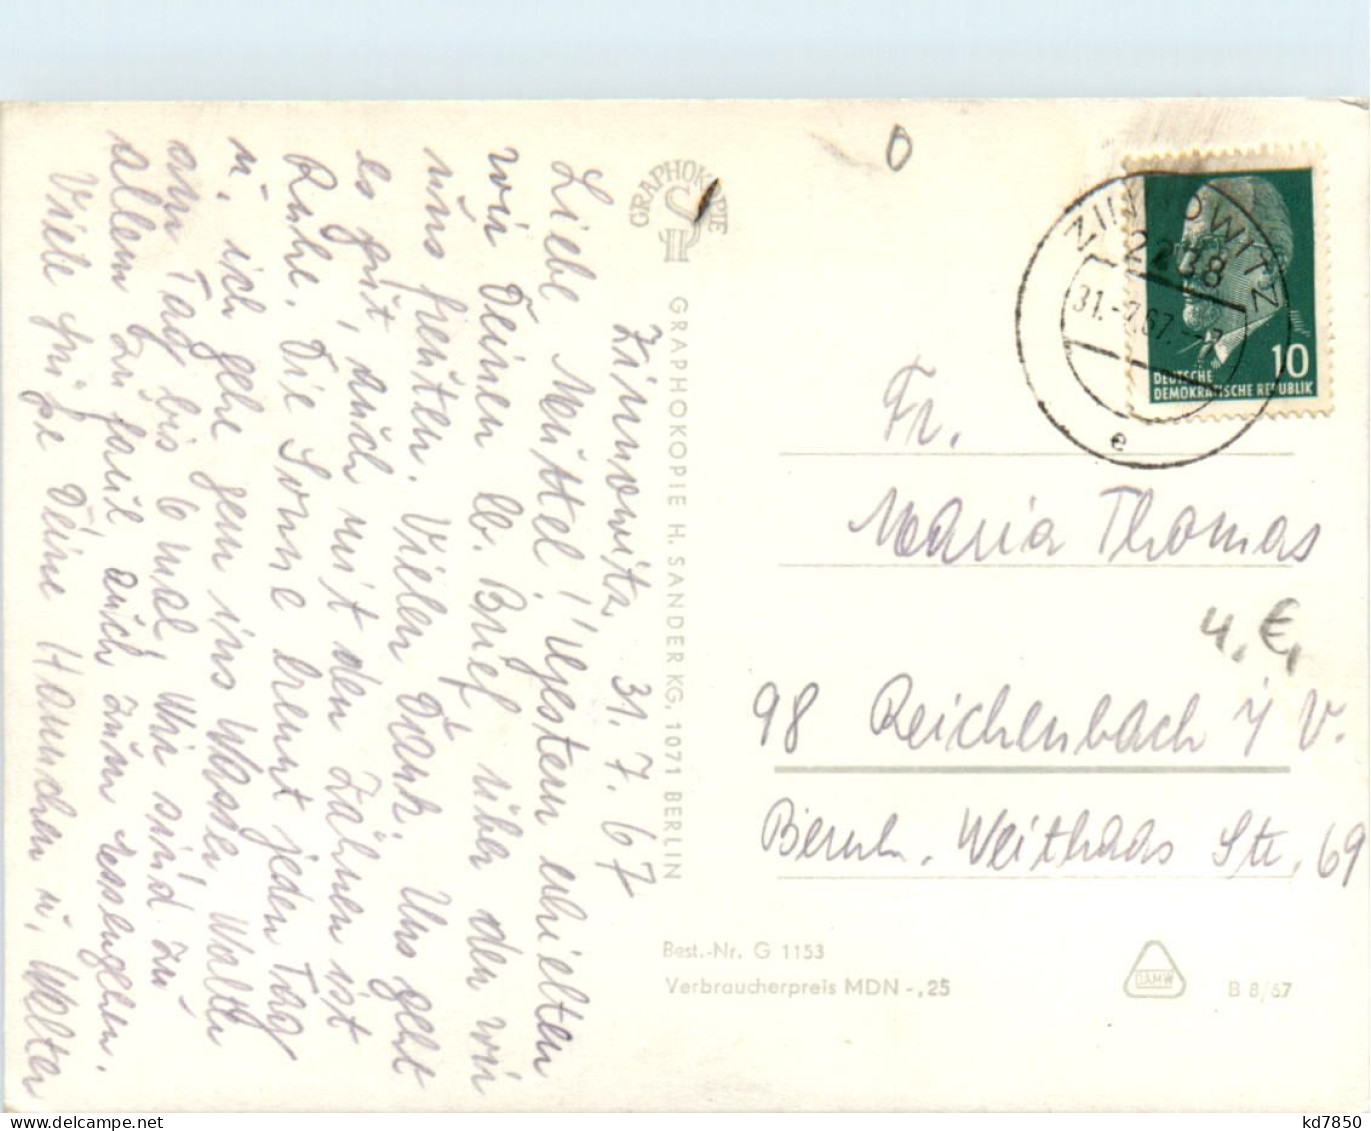 Zinnowitz, 31. 7. 67
Liebe Muttel! Gestern erhielten
wir Deinen lb. Brief, über den wir
uns freuten. Vielen Dank. Uns geht
es gut, auch mit den Zähnen ist
Ruhe. Die Sonne brennt jeden Tag
u. ich gehe gern ins Wasser, Walter
am Tag bis 6 mal. Wir sind zu
allem zu faul auch zum
Viele Grüße Deine Hannchen u. Walter
GRAPHOKOPIE
H S
GRAPHOKOPIE H. SANDER KG, 1071 BERLIN
0
ZINNOWITZ
2238
31.-7.67.-7
e
10
DEUTSCHE
DEMOKRATISCHE REPUBLIK
Fr.
Maria Thomas
4.€,
98 Reichenbach i/V.
Bernh. Weithaas Str. 69
Best.-Nr. G 1153
Verbraucherpreis MDN -,25
DAMW
B 8/67
kd7850